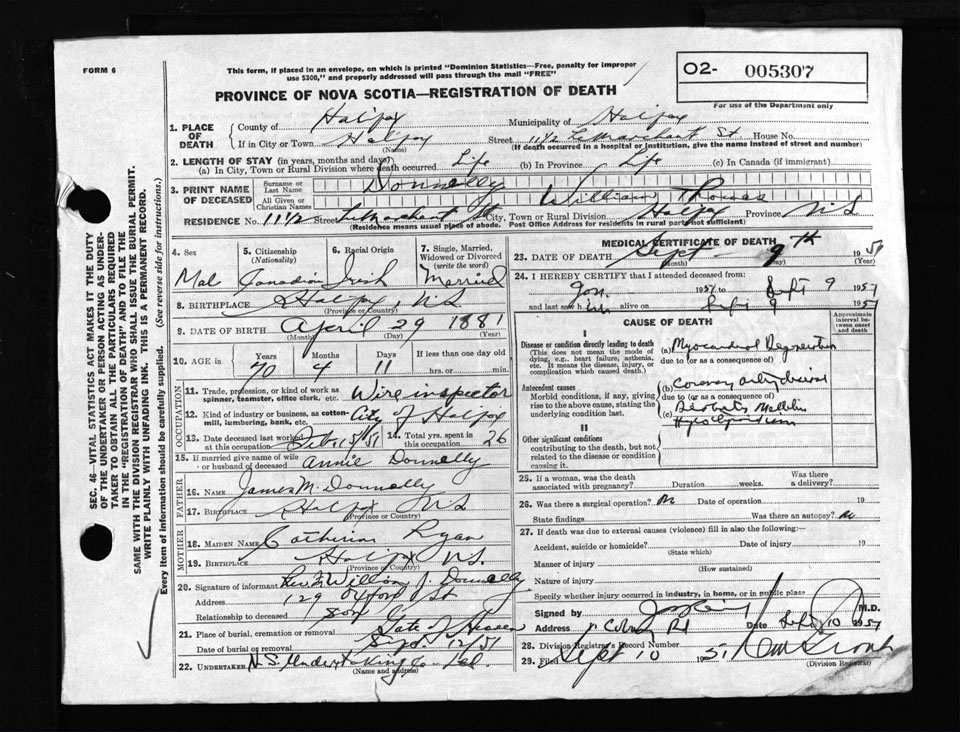 FORM 6
This form, if placed in an envelope, on which is printed "Dominion Statistics—Free, penalty for improper
use $300," and properly addressed will pass through the mail "FREE"
O2- 005307
For use of the Department only
PROVINCE OF NOVA SCOTIA—REGISTRATION OF DEATH
1. PLACE OF DEATH
County of Halifax Municipality of Halifax
If in City or Town Halifax (Name) Street 11½ LeMarchant St House No.
(If death occurred in a hospital or institution, give the name instead of street and number)
2. LENGTH OF STAY (in years, months and days)
(a) In City, Town or Rural Division where death occurred Life (b) In Province Life (c) In Canada (if immigrant)
3. PRINT NAME OF DECEASED
Surname or Last Name Donnelly
All Given or Christian Names William Thomas
RESIDENCE No. 11½ Street LeMarchant St City, Town or Rural Division Halifax Province N.S
(Residence means usual place of abode. Post Office Address for residents in rural parts not sufficient)
4. Sex 5. Citizenship (Nationality) 6. Racial Origin 7. Single, Married, Widowed or Divorced (write the word)
Mal Canadian Irish Married
8. BIRTHPLACE Halifax, N.S
(Province or Country)
9. DATE OF BIRTH April 29 1881
(Month) (Day) (Year)
10. AGE in Years Months Days If less than one day old
70 4 11 hrs. or min.
OCCUPATION
11. Trade, profession, or kind of work as spinner, teamster, office clerk, etc. Wire inspector
12. Kind of industry or business, as cotton-mill, lumbering, bank, etc. City of Halifax
13. Date deceased last worked at this occupation 51 14. Total yrs. spent in this occupation 26
15. If married give name of wife or husband of deceased Annie Donnelly
FATHER
16. NAME James M. Donnelly
17. BIRTHPLACE Halifax N.S
(Province or Country)
MOTHER
18. MAIDEN NAME Catherine Ryan
19. BIRTHPLACE Halifax N.S.
(Province or Country)
20. Signature of informant William J. Donnelly
Address 129 Oxford St
Relationship to deceased Son
21. Place of burial, cremation or removal Gate of Heaven
Date of burial or removal Sept. 12/51
22. UNDERTAKER N.S. Undertaking Co Ltd.
(Name and address)
MEDICAL CERTIFICATE OF DEATH
23. DATE OF DEATH Sept 9th 1951
(Month) (Day) (Year)
24. I HEREBY CERTIFY that I attended deceased from
Jan. 1951 to Sept 9 1951
and last saw him alive on Sept 9 1951
CAUSE OF DEATH
Approximate interval between onset and death
I
Disease or condition directly leading to death (a) Myocardial Degeneration
(This does not mean the mode of dying, e.g., heart failure, asthenia, etc. It means the disease, injury, or complication which caused death.)
due to (or as a consequence of)
Antecedent causes (b) Coronary artery disease
Morbid conditions, if any, giving rise to the above cause, stating the underlying condition last.
due to (or as a consequence of)
(c) Diabetes Mellitus
II
Other significant conditions
contributing to the death, but not related to the disease or condition causing it.
25. If a woman, was the death associated with pregnancy? Duration weeks. Was there a delivery?
26. Was there a surgical operation? No Date of operation 19
State findings Was there an autopsy? No
27. If death was due to external causes (violence) fill in also the following:—
Accident, suicide or homicide? Date 19
(State which)
Manner of injury
(How sustained)
Nature of injury
Specify whether injury occurred in industry, in home, or in public place
Signed by M.D.
Address Coburg Rd Date Sept 10 1951
28. Division Registrar's Record Number
29. Filed Sept 10 1951
(Division Registrar)
SEC. 46—VITAL STATISTICS ACT MAKES IT THE DUTY
OF THE UNDERTAKER OR PERSON ACTING AS UNDER-
TAKER TO OBTAIN ALL THE PARTICULARS REQUIRED
IN THE "REGISTRATION OF DEATH" AND TO FILE THE
SAME WITH THE DIVISION REGISTRAR WHO SHALL ISSUE THE BURIAL PERMIT.
WRITE PLAINLY WITH UNFADING INK. THIS IS A PERMANENT RECORD.
Every item of information should be carefully supplied. (See reverse side for instructions.)